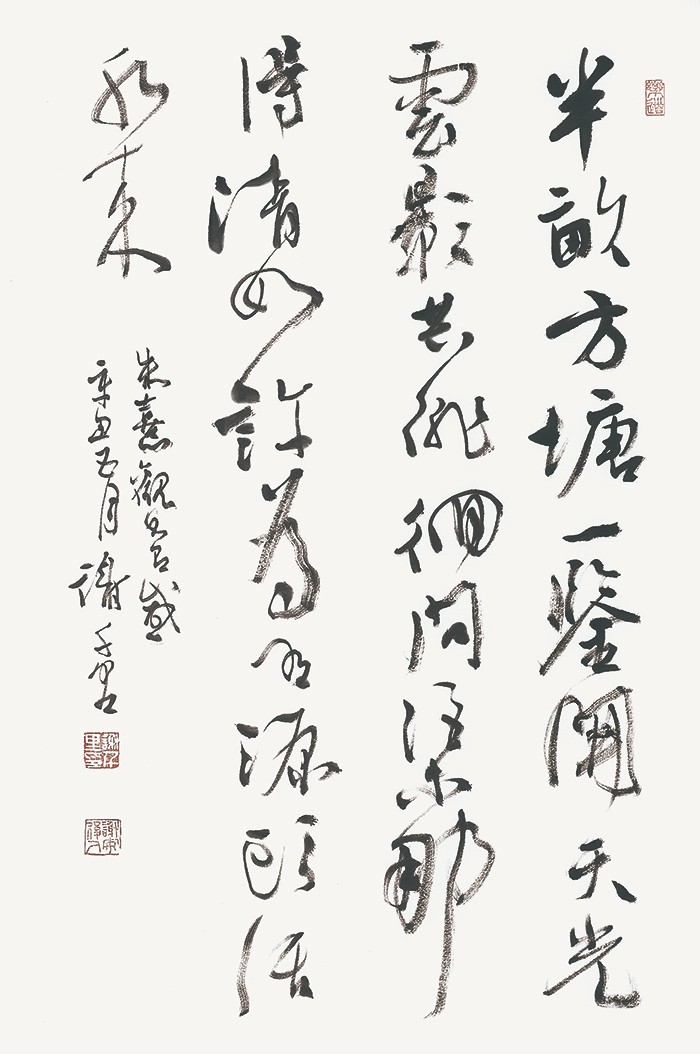 半畝方塘一鑒開天光
雲影共徘徊問渠那
得清如許為有源頭活
水來
朱熹觀書有感
辛丑五月謝